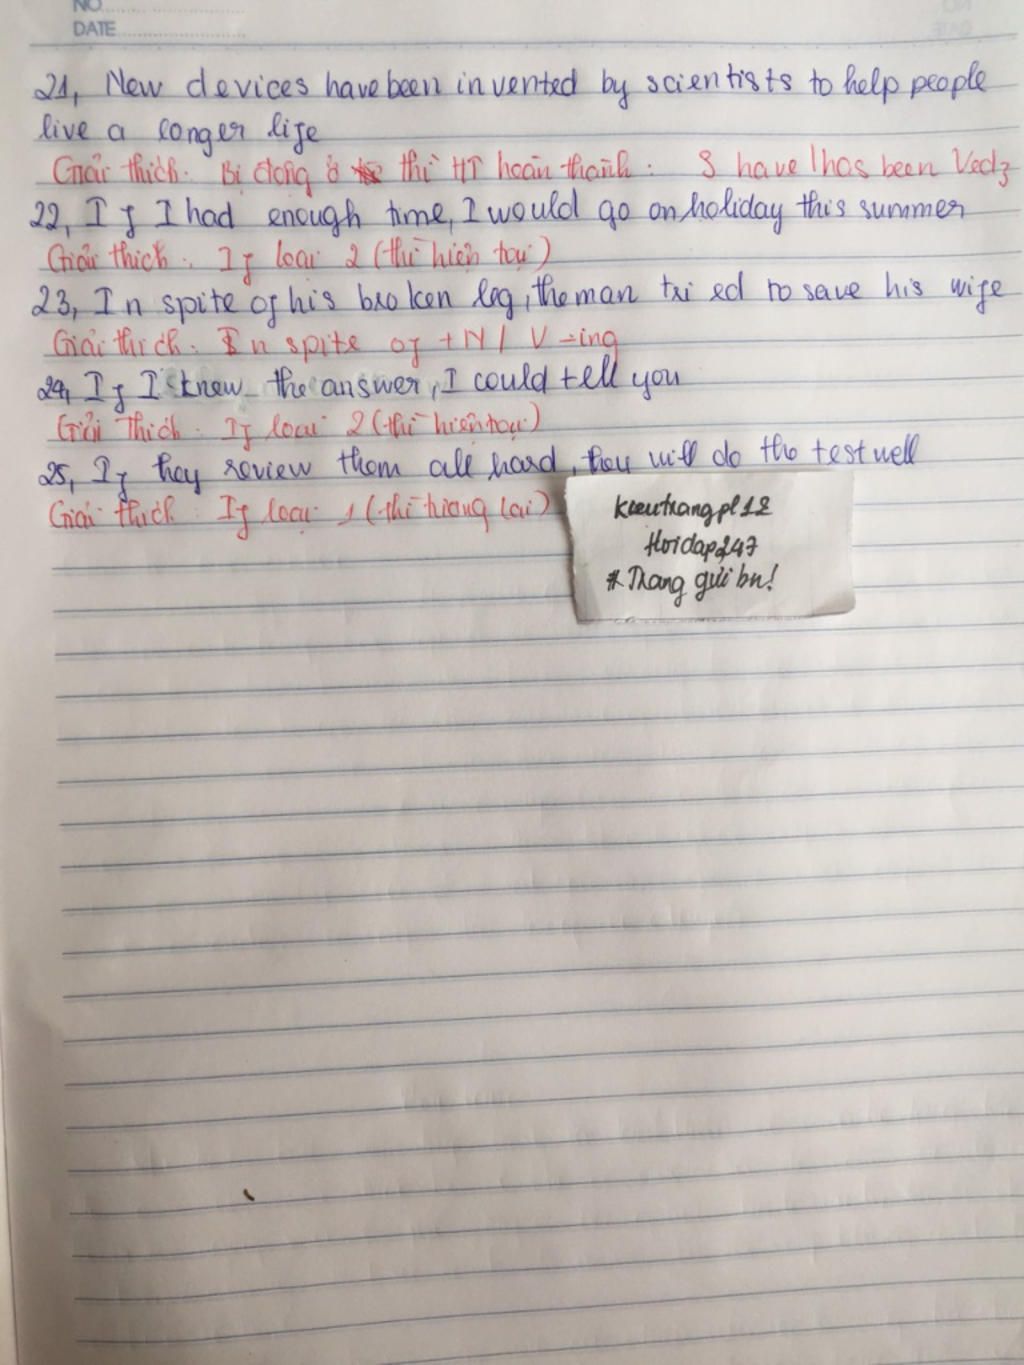 NO
DATE
21, New devices have been invented by scientists to help people
live a longer life
Giải thích: Bị động ở thì HT hoàn thành: S have/has been Ved/3
22, If I had enough time, I would go on holiday this summer
Giải thích: If loại 2 (thì hiện tại)
23, In spite of his broken leg, the man tried to save his wife
Giải thích: In spite of + N / V-ing
24, If I knew the answer, I could tell you
Giải thích: If loại 2 (thì hiện tại)
25, If they review them all hard, they will do the test well
Giải thích: If loại 1 (thì tương lai)
kieutrangpl12
Hoidap247
#Trang gửi bn!